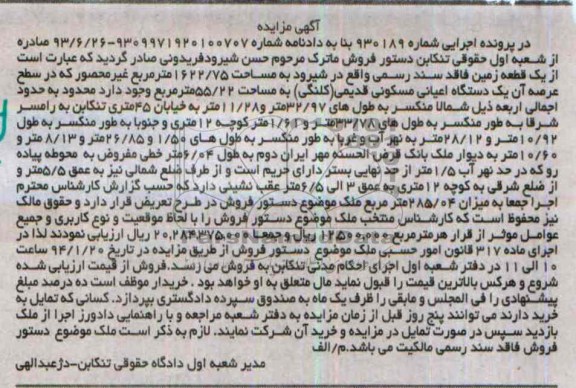 آگهی مزایده
در پرونده اجرایی شماره ۹۳۰۱۸۹ بنا به دادنامه شماره ۹۳۰۹۹۷۱۹۲۰۱۰۰۷۰۷-۹۳/۶/۲۶ صادره
از شعبه اول حقوقی تنکابن دستور فروش ماترک مرحوم حسن شیرودفریدونی صادر گردید که عبارت است
از یک قطعه زمین فاقد سند رسمی واقع در شیرود به مساحت ۱۶۲۲/۷۵مترمربع غیرمحصور که در سطح
عرصه آن یک دستگاه اعیانی مسکونی قدیمی(کلنگی) به مساحت ۵۵/۲۲مترمربع وجود دارد محدود به حدود
اجمالی اربعه ذیل شمالا منکسر به طول های ۳۲/۹۷متر و۱۱/۲۸متر به خیابان ۴۵متری تنکابن به رامسر
شرقا به طور منکسر به طول های۳۳/۷۸متر و ۱/۶۱متر کوچه ۱۲متری و جنوبا به طور منکسر به طول
۱۰/۹۲متر و ۲۸/۱۲متر به نهر آب و غربا به طور منکسر به طول های ۱/۵۰ و ۲۶/۸۵متر و ۸/۱۳ متر و
۱۰/۶۰متر به دیوار ملک بانک قرض الحسنه مهر ایران دوم به طول ۶/۰۴متر خطی مفروض به محوطه پیاده
رو که در حد نهر آب ۱/۵متر از حد نهایی بستر دارای حریم است و از طرف ضلع شمالی نیز به عمق ۵/۵متر و
از ضلع شرقی به کوچه ۱۲متری به عمق ۲ الی ۶/۵متر عقب نشینی دارد که حسب گزارش کارشناس محترم
اجرا جمعا به میزان ۲۸۵/۰۴متر مربع ملک موضوع دستور فروش در طرح تعریض قرار دارد و حقوق مالک
نیز محفوظ است که کارشناس منتخب ملک موضوع دستور فروش را با لحاظ موقعیت و نوع کاربری و جمیع
عوامل موثر از قرار هرمترمربع ۱۲۵۰۰۰۰۰ ریال و جمعا ۲۰,۲۸۴۳۷۵۰۰۰ ریال ارزیابی نمودند لذا در
اجرای ماده ۳۱۷ قانون امور حسبی ملک موضوع دستور فروش از طریق مزایده در تاریخ ۹۴/۱/۲۰ ساعت
۱۰ الی ۱۱ در دفتر شعبه اول اجرای احکام مدنی تنکابن به فروش می رسد.فروش از قیمت ارزیابی شده
شروع و هرکس بالاترین قیمت را قبول نماید مال متعلق به او خواهد بود . خریدار موظف است ده درصد مبلغ
پیشنهادی را فی المجلس و مابقی را ظرف یک ماه به صندوق سپرده دادگستری بپردازد. کسانی که تمایل به
خرید دارند می توانند پنج روز قبل از زمان مزایده به دفتر شعبه مراجعه و با راهنمایی دادورز اجرا از ملک
بازدید سپس در صورت تمایل در مزایده و خرید آن شرکت نمایند. لازم به ذکر است ملک موضوع دستور
فروش فاقد سند رسمی مالکیت می باشد.م/الف
مدیر شعبه اول دادگاه حقوقی تنکابن-دژعبدالهی